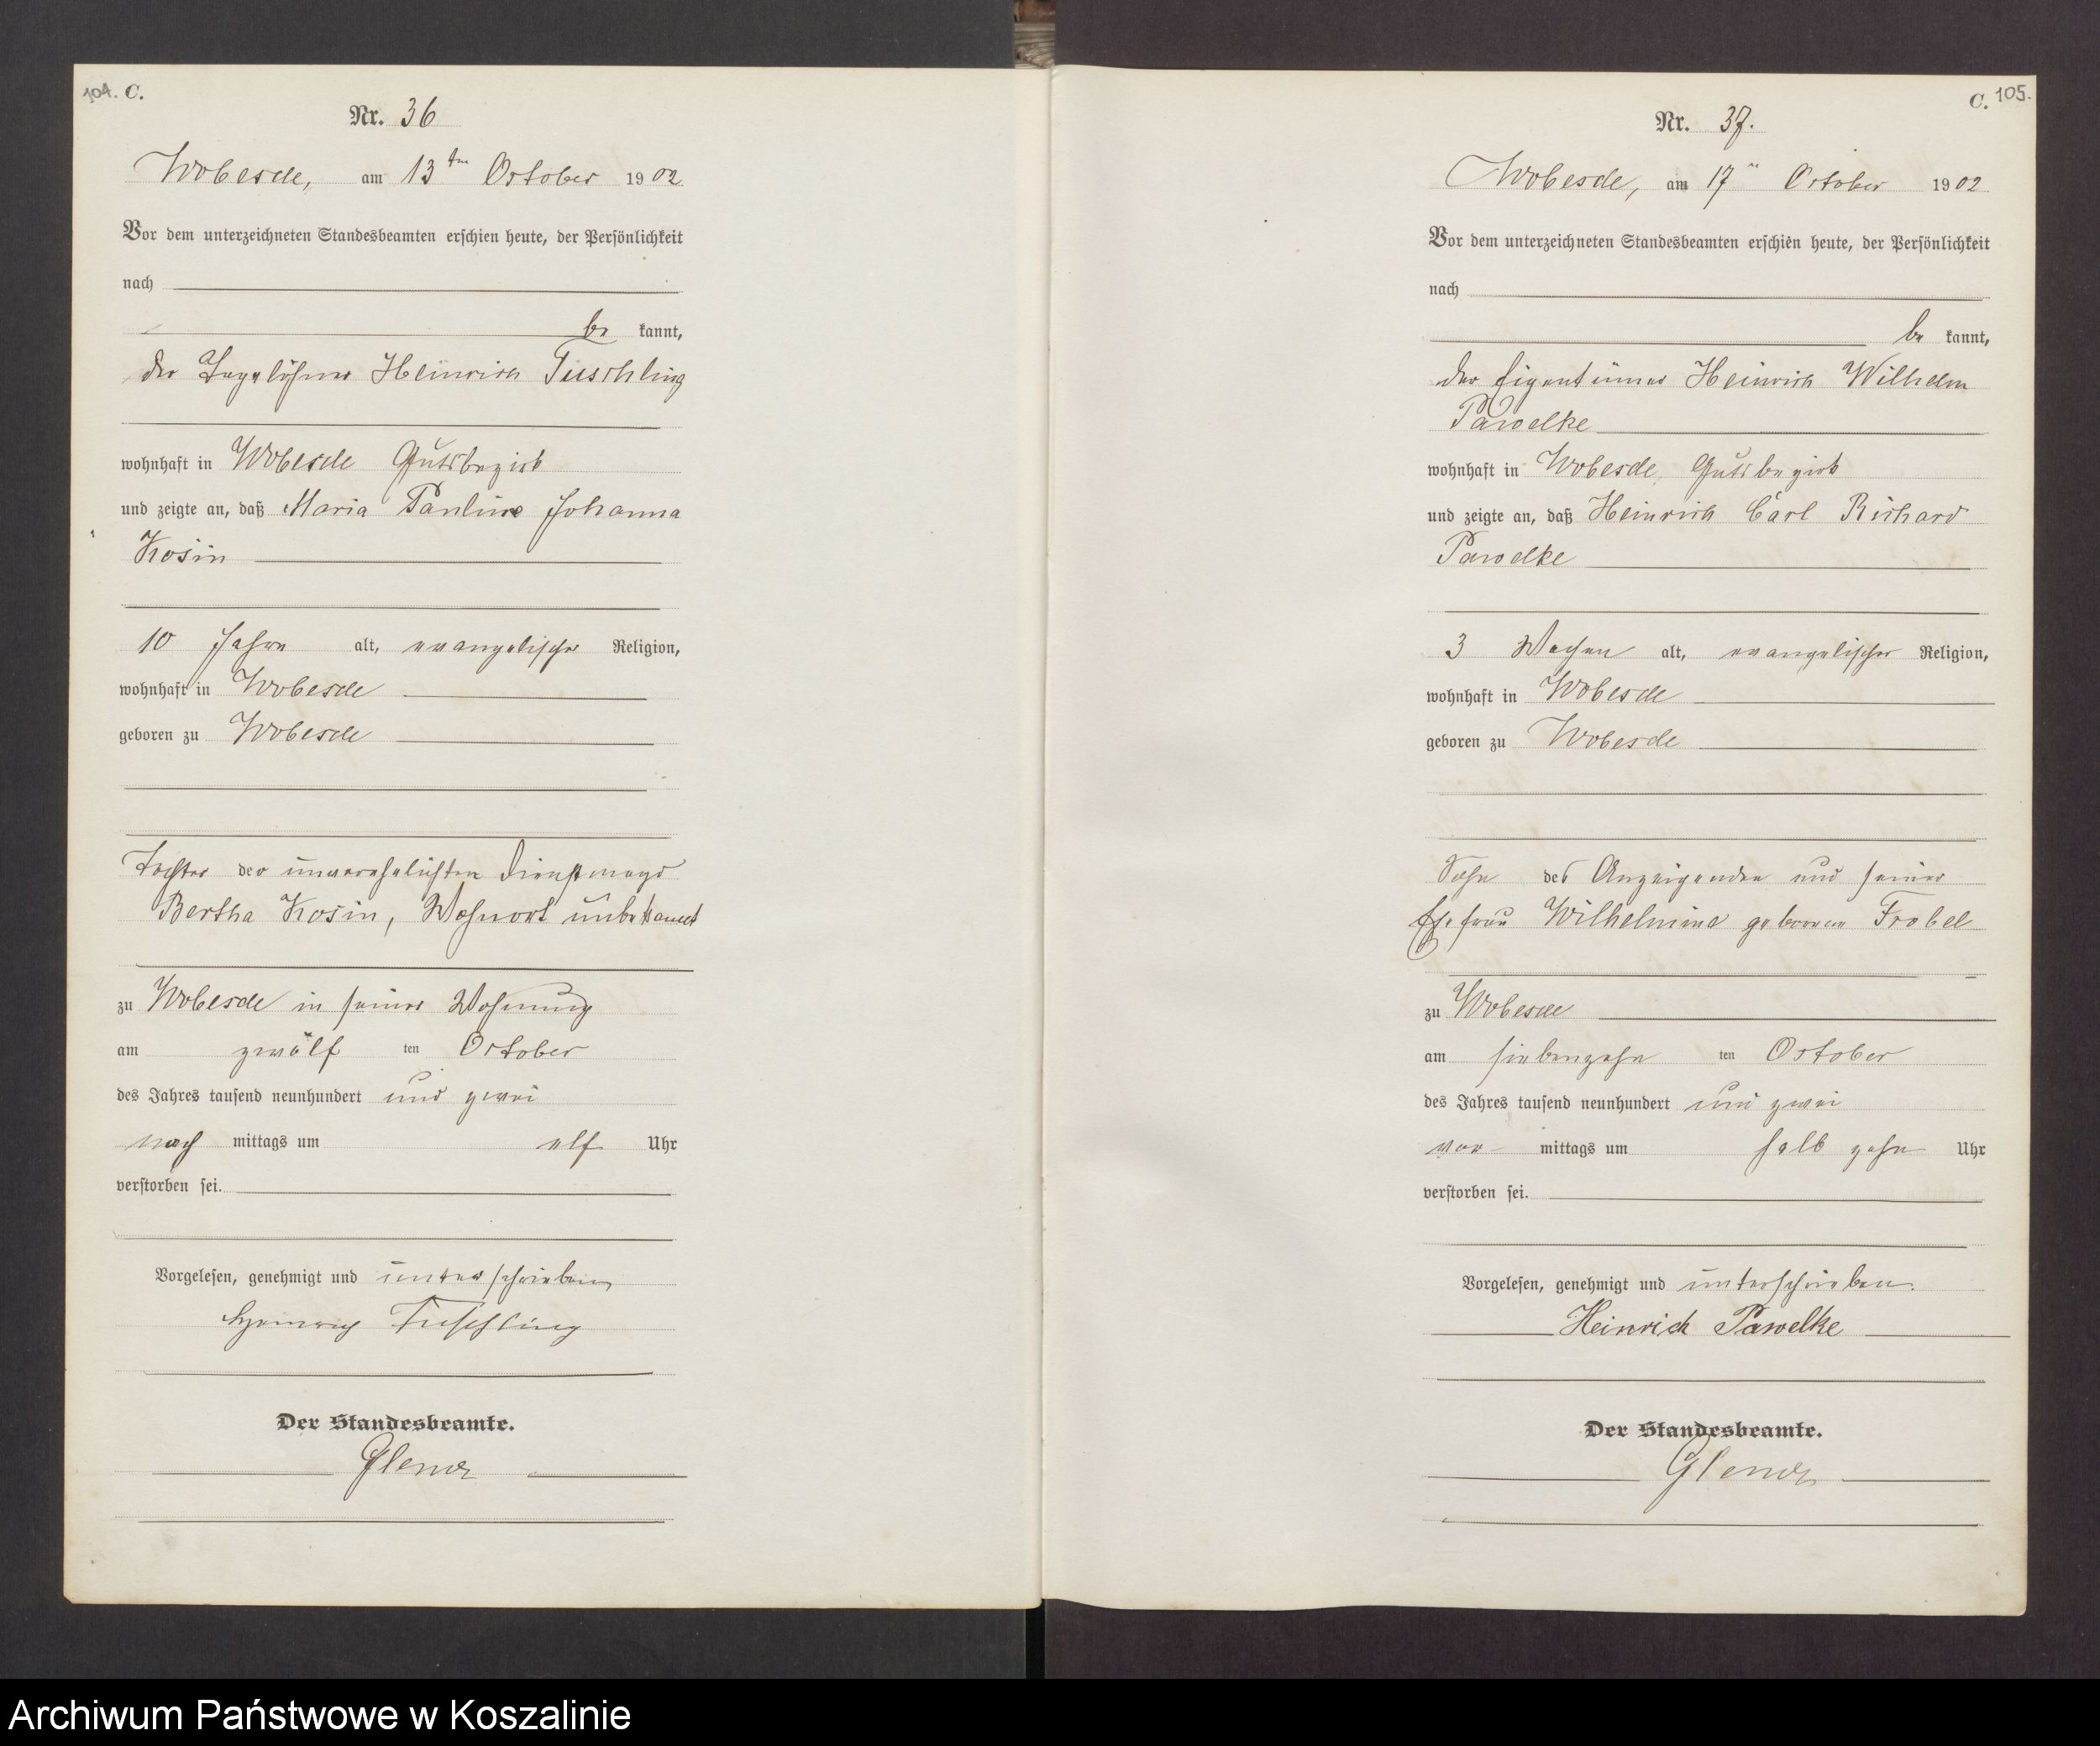 104. C.
Nr. 36
Wobesde, am 13ten October 1902
Vor dem unterzeichneten Standesbeamten erschien heute, der Persönlichkeit
nach
be kannt,
der Tagelöhner Heinrich Tuschling
wohnhaft in Wobesde Gutsbezirk
und zeigte an, daß Maria Pauline Johanna
Kosin
10 Jahre alt, evangelischer Religion,
wohnhaft in Wobesde
geboren zu Wobesde
Tochter der unverehelichten Dienstmagd
Bertha Kosin, Wohnort unbekannt
zu Wobesde in seiner Wohnung
am zwölf ten October
des Jahres tausend neunhundert und zwei
nach mittags um elf Uhr
verstorben sei.
Vorgelesen, genehmigt und unterschrieben
Heinrich Tuschling
Der Standesbeamte.
C. 105.
Nr. 37.
Wobesde, am 17ten October 1902
Vor dem unterzeichneten Standesbeamten erschien heute, der Persönlichkeit
nach
be kannt,
der Eigentümer Heinrich Wilhelm
Pawelke
wohnhaft in Wobesde, Gutsbezirk
und zeigte an, daß Heinrich Carl Richard
Pawelke
3 Wochen alt, evangelischer Religion,
wohnhaft in Wobesde
geboren zu Wobesde
Sohn des Anzeigenden und seiner
Ehefrau Wilhelmine geborene Frobel
zu Wobesde
am siebenzehn ten October
des Jahres tausend neunhundert und zwei
vor mittags um halb zehn Uhr
verstorben sei.
Vorgelesen, genehmigt und unterschrieben.
Heinrich Pawelke
Der Standesbeamte.
Archiwum Państwowe w Koszalinie